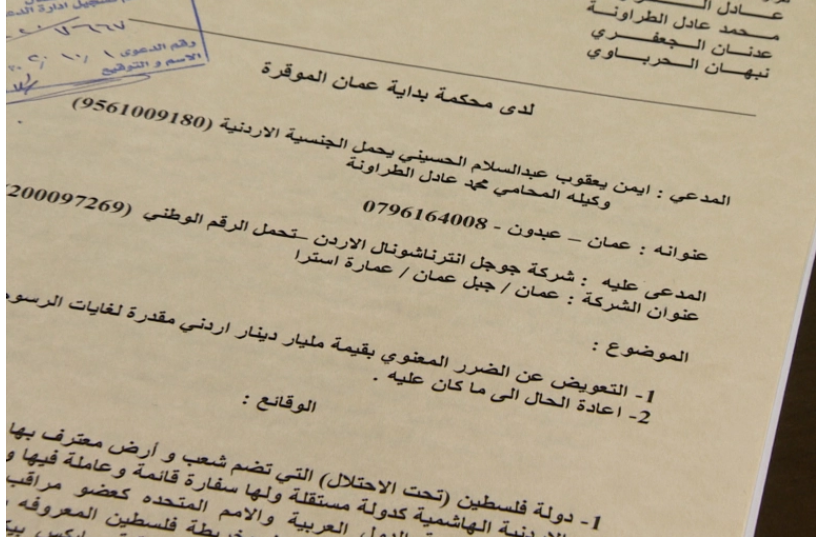 عادل
محمد عادل الطراونة
عدنان الجعفري
نبهان الحرباوي
رقم الدعوى
الاسم و التوقيع
لدى محكمة بداية عمان الموقرة
المدعي : ايمن يعقوب عبدالسلام الحسيني يحمل الجنسية الاردنية (9561009180)
وكيله المحامي محمد عادل الطراونة
عنوانه : عمان – عبدون - 0796164008
المدعى عليه : شركة جوجل انترناشونال الاردن –تحمل الرقم الوطني (200097269
عنوان الشركة : عمان / جبل عمان / عمارة استرا
الموضوع :
1- التعويض عن الضرر المعنوي بقيمة مليار دينار اردني مقدرة لغايات الرسوم
2- اعادة الحال الى ما كان عليه .
الوقائع :
1- دولة فلسطين (تحت الاحتلال) التي تضم شعب و أرض معترف بها
الاردنية الهاشمية كدولة مستقلة ولها سفارة قائمة وعاملة فيها و
الدول العربية والامم المتحده كعضو مراقب
خريطة فلسطين المعروفه